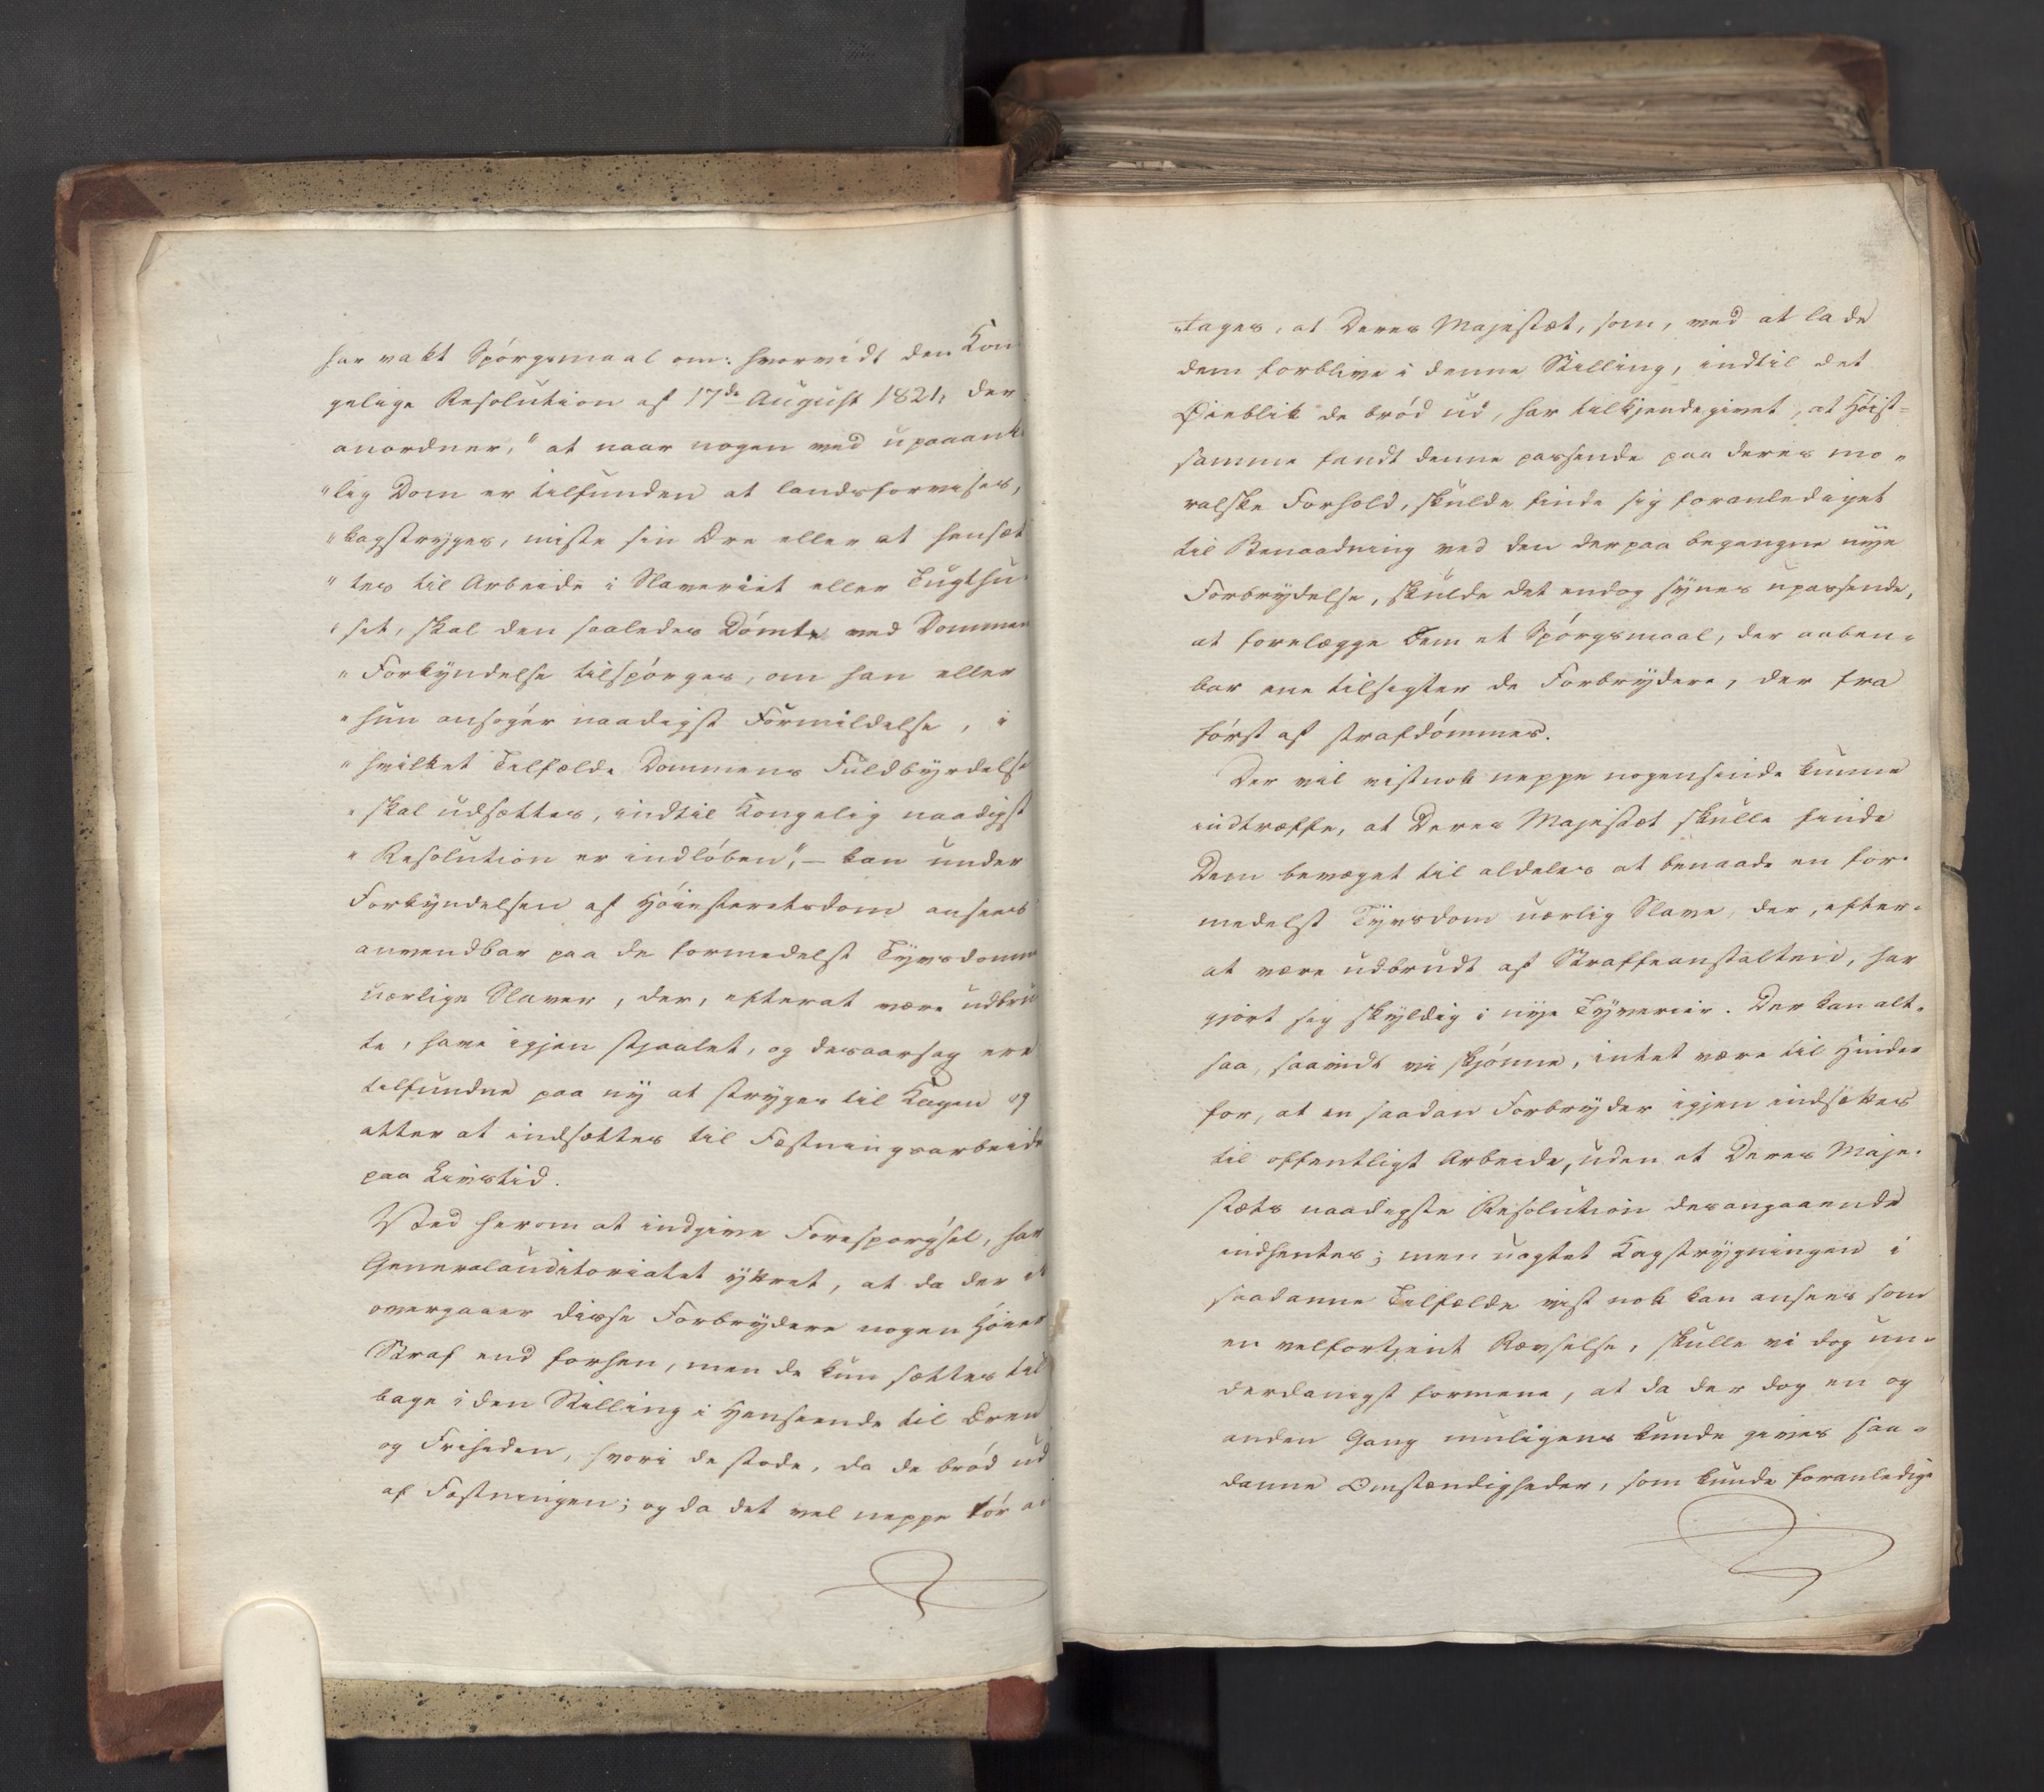 har vakt Spórgsmaal om: hvorvidt den Kon
gelige Resolution af 17de August 1821, der
anordner, "at naar nogen ved upaaank
"lig Dom er tilfunden at landsforvises,
"kagstryges, miste sin Ære eller at hensæt
"tes til Arbeide i Slaveriet eller Tugthu-
"set, skal den saaledes Dómte ved Dommen
"Forkyndelse tilspórges, om han eller
"hun ansøger naadigst Formildelse, i
"hvilket Tilfælde Dommens Fuldbyrdelse
"skal udsættes, indtil Kongelig naadigst
"Resolution er indlóben", – kan under
Forkyndelsen af Hóiesteretsdom ansees
anvendbar paa de formedelst Tyvsdomme
uærlige Slaver, der, efterat være udbru
te, have igjen stjaalet, og desaarsag ere
tilfundne paa ny at stryges til Kagen og
atter at indsættes til Fæstningsarbeide
paa Livstid.
Ved herom at indgive Forespørgsel, har
Generalauditoriatet yttret, at da der ei
overgaaer disse Forbrydere nogen Hóiere
Straf end forhen, men de kun sættes til
bage i den Stilling i Henseende til Æren
og Friheden, hvori de stode, da de bród ud
af Fæstningen; og da det vel neppe tór an
"tages, at Deres Majestæt, som, ved at lade
dem forblive i denne Stilling, indtil det
Øieblik de bród ud, har tilkjendegivet, at Hóist=
samme fandt denne passende paa deres mo-
ralske Forhold, skulde finde sig foranlediget
til Benaadning ved den derpaa begangne nye
Forbrydelse, skulde det endog synes upassende,
at forelægge dem et Spórgsmaal, der aaben-
bar ene tilsigter de Forbrydere, der fra
fórst af strafdómmes.
Der vil vistnok neppe nogensinde kunne
indtræffe, at Deres Majestæt skulle finde
Dem bevæget til aldeles at benaade en for-
medelst Tyvsdom uærlig Slave, der, efter-
at være udbrudt af Straffeanstalten, har
gjort sig skyldig i nye Tyverier. Der kan alt-
saa, saavidt vi skjónne, intet være til Hinder
for, at en saadan Forbryder igjen indsættes
til offentligt Arbeide, uden at Deres Maje-
stæts naadigste Resolution desangaaende
indhentes; men uagtet Kagstrygningen i
saadanne Tilfælde vist nok kan ansees som
en velfortjent Revselse, skulle vi dog un-
derdanigst formene, at da der dog en og
anden Gang muligens kunde gives saa-
danne Omstændigheder, som kunde foranledige